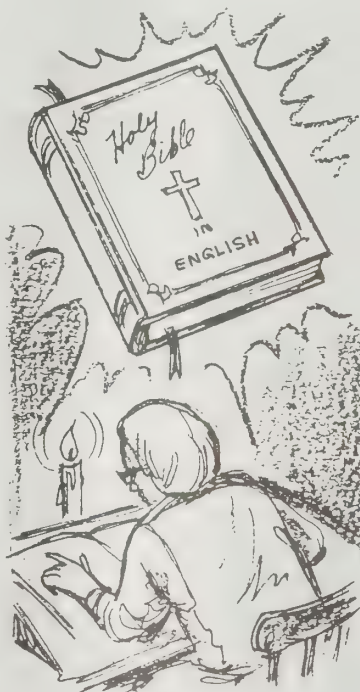 Holy
Bible
IN
ENGLISH